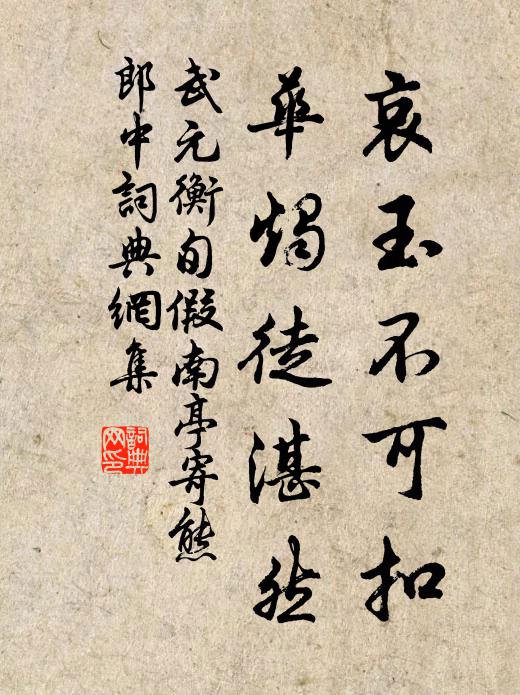 哀玉不可扣
華燭徒湛然
武元衡旬假南亭寄熊
郎中詞典網集
詞典
网印